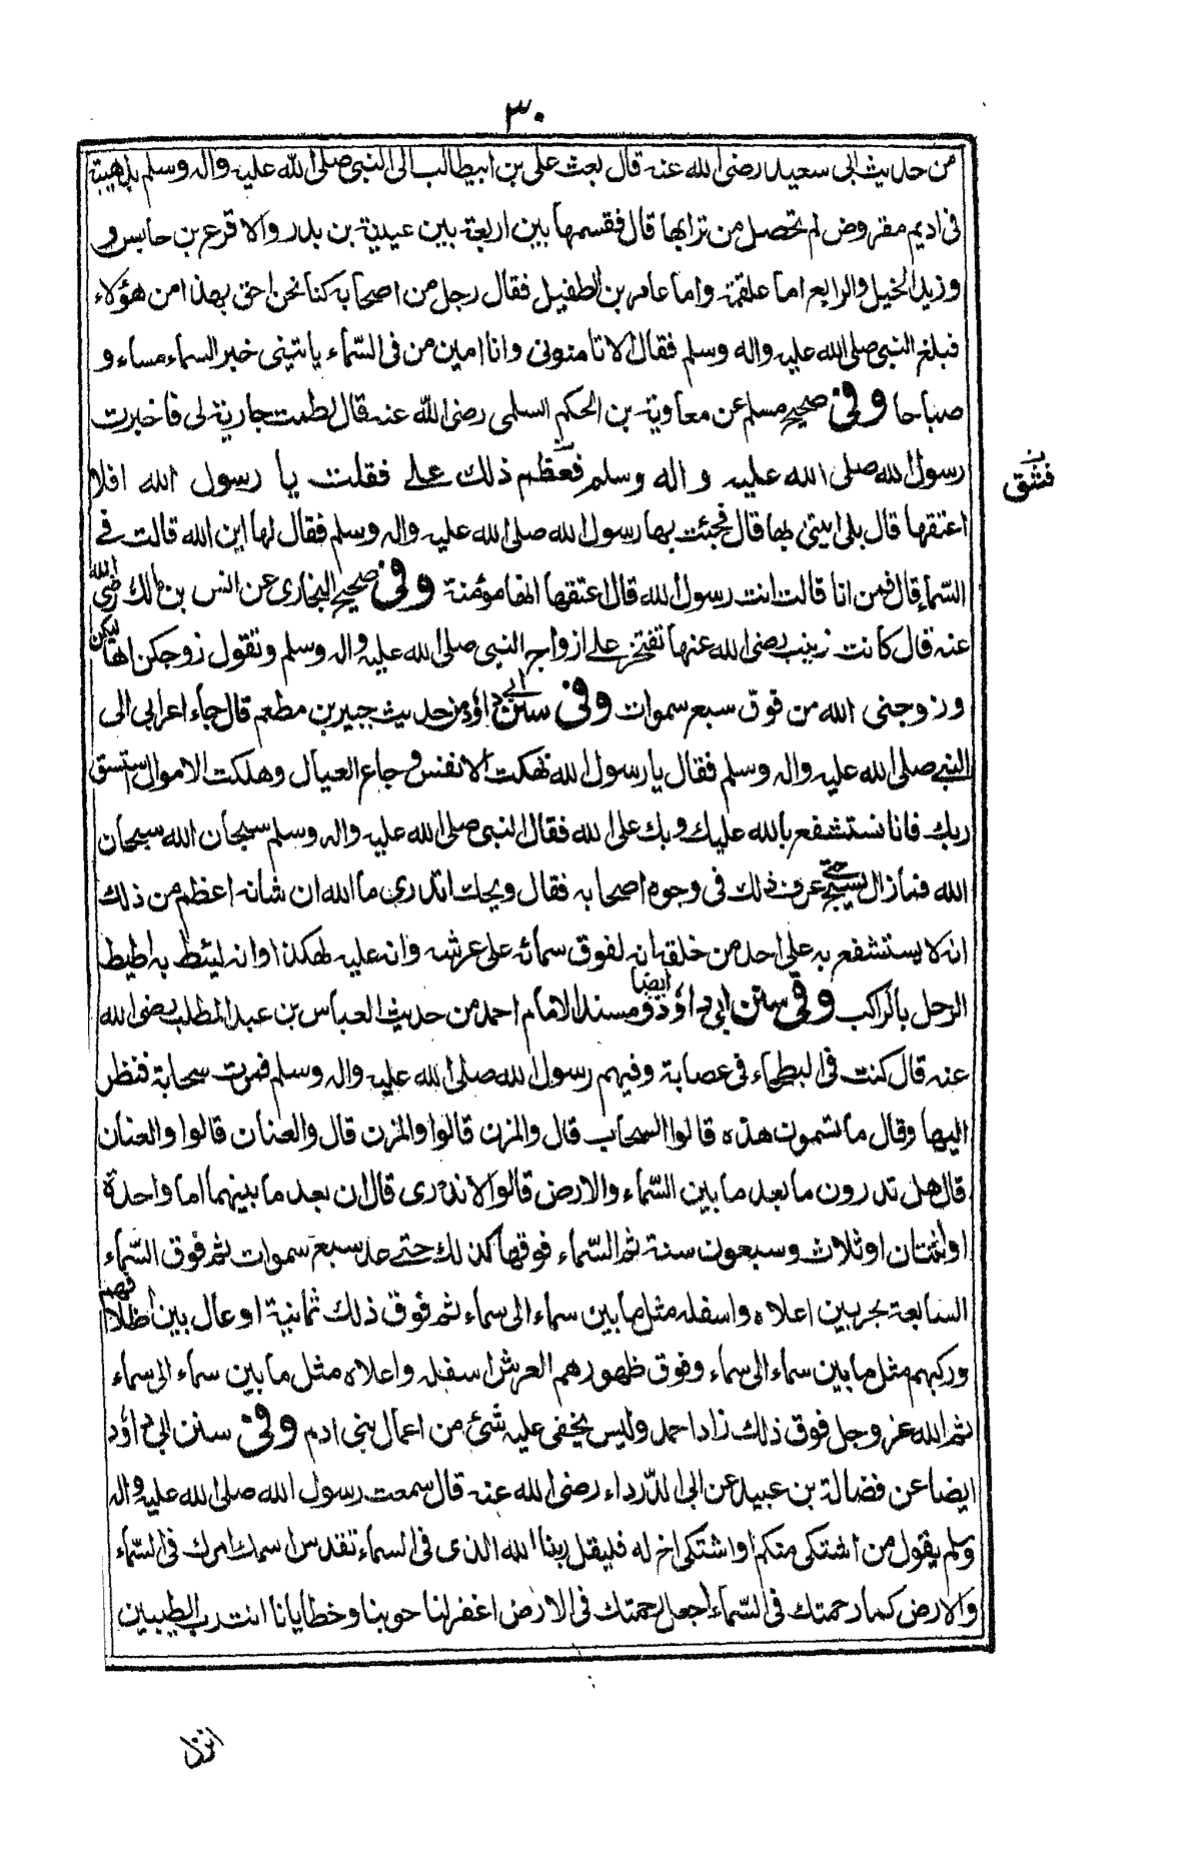 ٣٠
من حديث ابى سعيد رضى الله عنه قال بعث على بن ابيطالب الى النبى صلى الله عليه واله وسلم بذهيبة
فى اديم مقروض لم تحصل من ترابها قال فقسمها بين اربعة بين عيينة بن بدر والاقرع بن حابس و
وزيد الخيل والرابع اما علقمة واما عامر بن الطفيل فقال رجل من اصحابه كنا نحن احق بهذا من هؤلاء
فبلغ النبى صلى الله عليه واله وسلم فقال الا تامنونى وانا امين من فى السّماء ياتينى خبر السماء مساء و
صباحا وفى صحيح مسلم عن معاوية بن الحكم السلمى رضى الله عنه قال لطمت جارية لى فاخبرت
رسول الله صلى الله عليه واله وسلم فعظم ذلك على فقلت يا رسول الله افلا
فشق
اعتقها قال بلى ايتنى بها قال فجئت بها رسول الله صلى الله عليه واله وسلم فقال لها اين الله قالت فى
السّماء قال فمن انا قالت انت رسول الله قال اعتقها انها مؤمنة وفى صحيح البخارى عن انس بن مالك رضى الله
عنه قال كانت زينب رضى الله عنها تفتخر على ازواج النبى صلى الله عليه واله وسلم وتقول زوجكن اهاليكن
وزوجنى الله من فوق سبع سموات وفى سنن ابى داؤد من حديث جبير بن مطعم قال جاء اعرابى الى
النبى صلى الله عليه واله وسلم فقال يا رسول الله نهكت الانفس وجاع العيال وهلكت الاموال استسق
ربك فانا نستشفع بالله عليك وبك على الله فقال النبى صلى الله عليه واله وسلم سبحان الله سبحان
الله فمازال يسبح حتى عرف ذلك فى وجوه اصحابه فقال ويحك اتدرى ما الله ان شانه اعظم من ذلك
انه لا يستشفع به على احد من خلقه انه لفوق سمائه على عرشه وانه عليه لهكذا وانه ليئط به اطيط
الرحل بالراكب وفى سنن ابى داؤد ايضا ومسند الامام احمد من حديث العباس بن عبد المطلب رضى الله
عنه قال كنت فى البطحاء فى عصابة وفيهم رسول الله صلى الله عليه واله وسلم فمرت سحابة فنظر
اليها وقال ما تسمون هذه قالوا السحاب قال والمزن قالوا والمزن قال والعنان قالوا والعنان
قال هل تدرون ما بعد ما بين السّماء والارض قالوا لا ندرى قال ان بعد ما بينهما اما واحدة
او اثنتان او ثلاث وسبعون سنة ثم السّماء فوقها كذلك حتى عد سبع سموات ثم فوق السّماء
السابعة بحر بين اعلاه واسفله مثل ما بين سماء الى سماء ثم فوق ذلك ثمانية اوعال بين اظلافهم
وركبهم مثل ما بين سماء الى سماء وفوق ظهورهم العرش اسفله واعلاه مثل ما بين سماء الى سماء
ثم الله عز وجل فوق ذلك زاد احمد وليس يخفى عليه شئ من اعمال بنى ادم وفى سنن ابى داؤد
ايضا عن فضالة بن عبيد عن ابى الدّرداء رضى الله عنه قال سمعت رسول الله صلى الله عليه واله
وسلم يقول من اشتكى منكم او اشتكى اخ له فليقل ربنا الله الذى فى السماء تقدس اسمك امرك فى السّماء
والارض كما رحمتك فى السّماء اجعل رحمتك فى الارض اغفر لنا حوبنا وخطايانا انت رب الطيبين
انزل